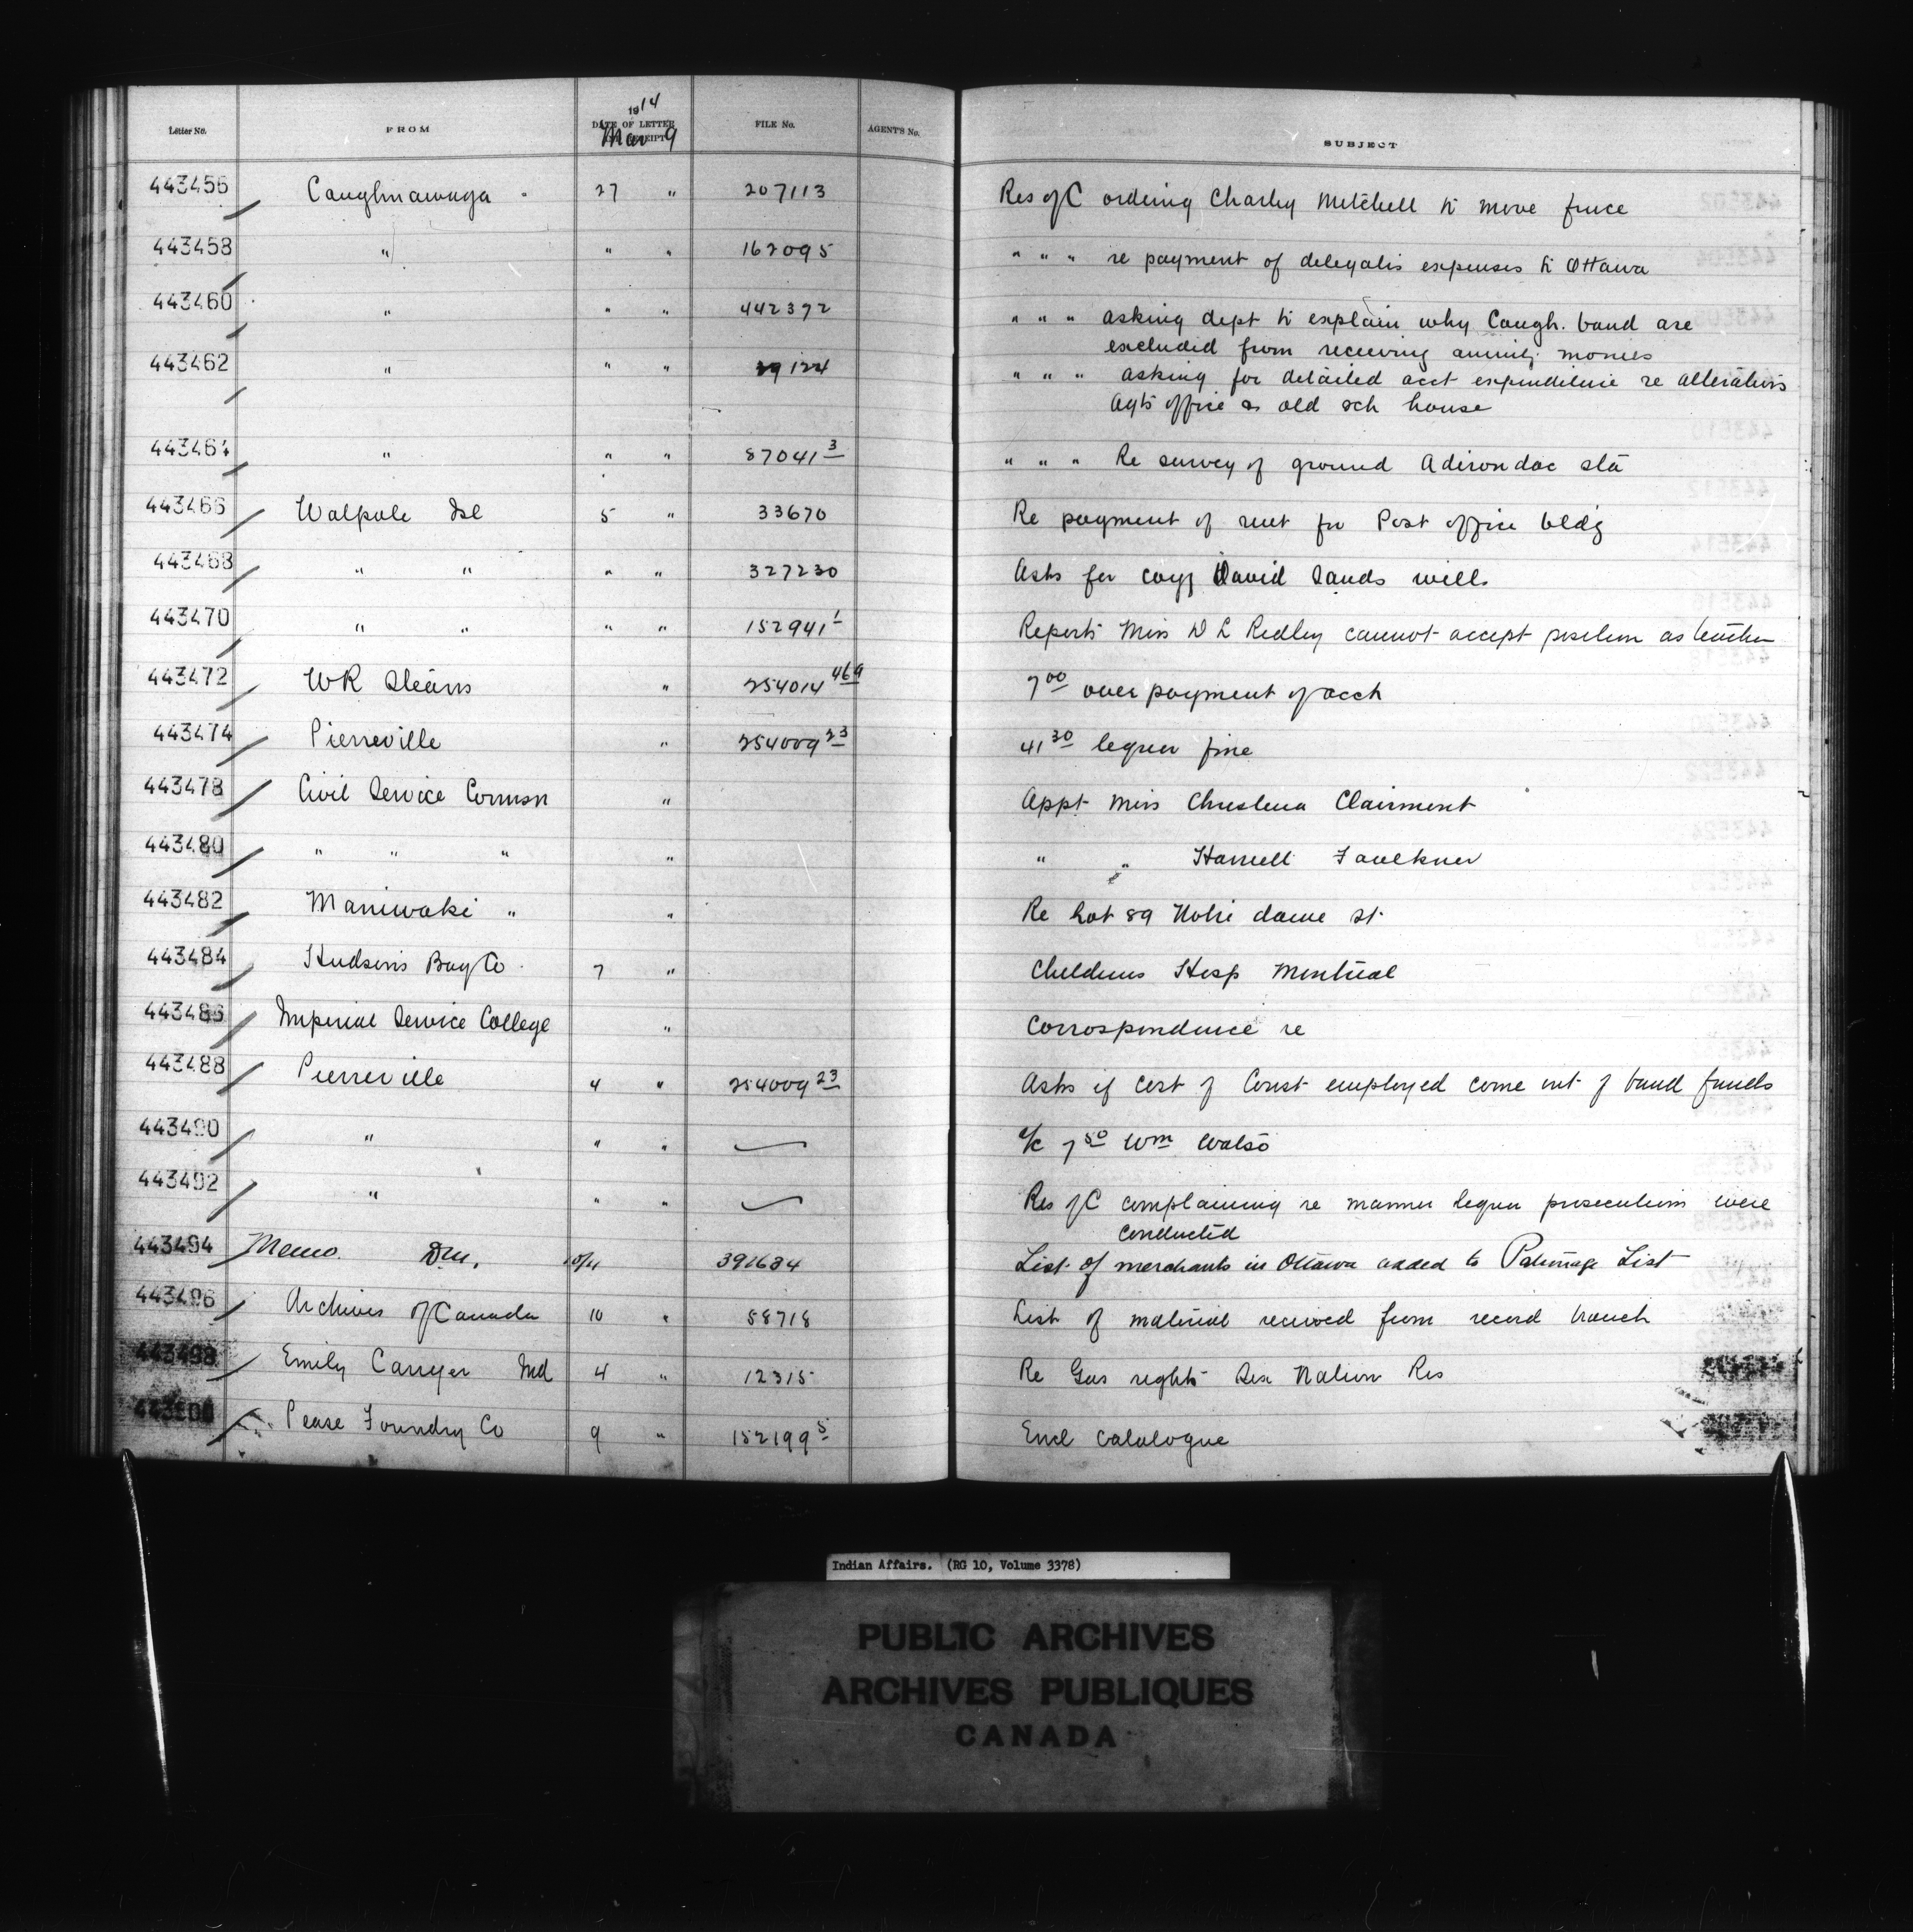 1914
Letter No. FROM DATE OF LETTER RECEIPT FILE No. AGENT'S No. SUBJECT
Mar 9
443456 Caughnawaga 27 " 207113 Res of C ordering Charley Mitchell to move fence
443458 " " " 162095 " " " re payment of delegates expenses to Ottawa
443460 " " " 442372 " " " asking dept to explain why Caugh. band are
excluded from receiving annuity monies
443462 " " " 124 " " " asking for detailed acct expenditure re alterations
Agts office & old sch house
443464 " " " 87041 3 " " " Re survey of ground Adirondac sta
443466 Walpole Isl 5 " 33670 Re payment of rent for Post office bldg
443468 " " " " 327230 Asks for copy David Sands will
443470 " " " " 152941 1 Reports Miss D L Redley cannot accept position as teacher
443472 WR Stearns " 254014 469 7 00 over payment of acct
443474 Pierreville " 254009 23 41 30 liquor fine
443478 Civil Service Commsn " Appt Miss Christena Clairmont
443480 " " " " " " Faulkner
443482 Maniwaki " " Re Lot 89 Notre dame St.
443484 Hudson's Bay Co 7 " Childrens Hosp Montreal
443486 Imperial Service College " Correspondence re
443488 Pierreville 4 " 254009 23 Asks if cost of Const employed come out of band funds
443490 " " " a/c 7 50 Wm Watso
443492 " " " Res of C complaining re manner liquor prosecutions were
conducted
443494 Memo. 391684 List of merchants in Ottawa added to Patronage List
443496 Archives of Canada 10 " 58718 List of material received from record branch
443498 Emily Carryer Md 4 " 12315 Re Gas rights Six Nation Res
443500 Pease Foundry Co 9 " 152199 5 Encl catalogue
Indian Affairs. (RG 10, Volume 3378)
PUBLIC ARCHIVES
ARCHIVES PUBLIQUES
CANADA